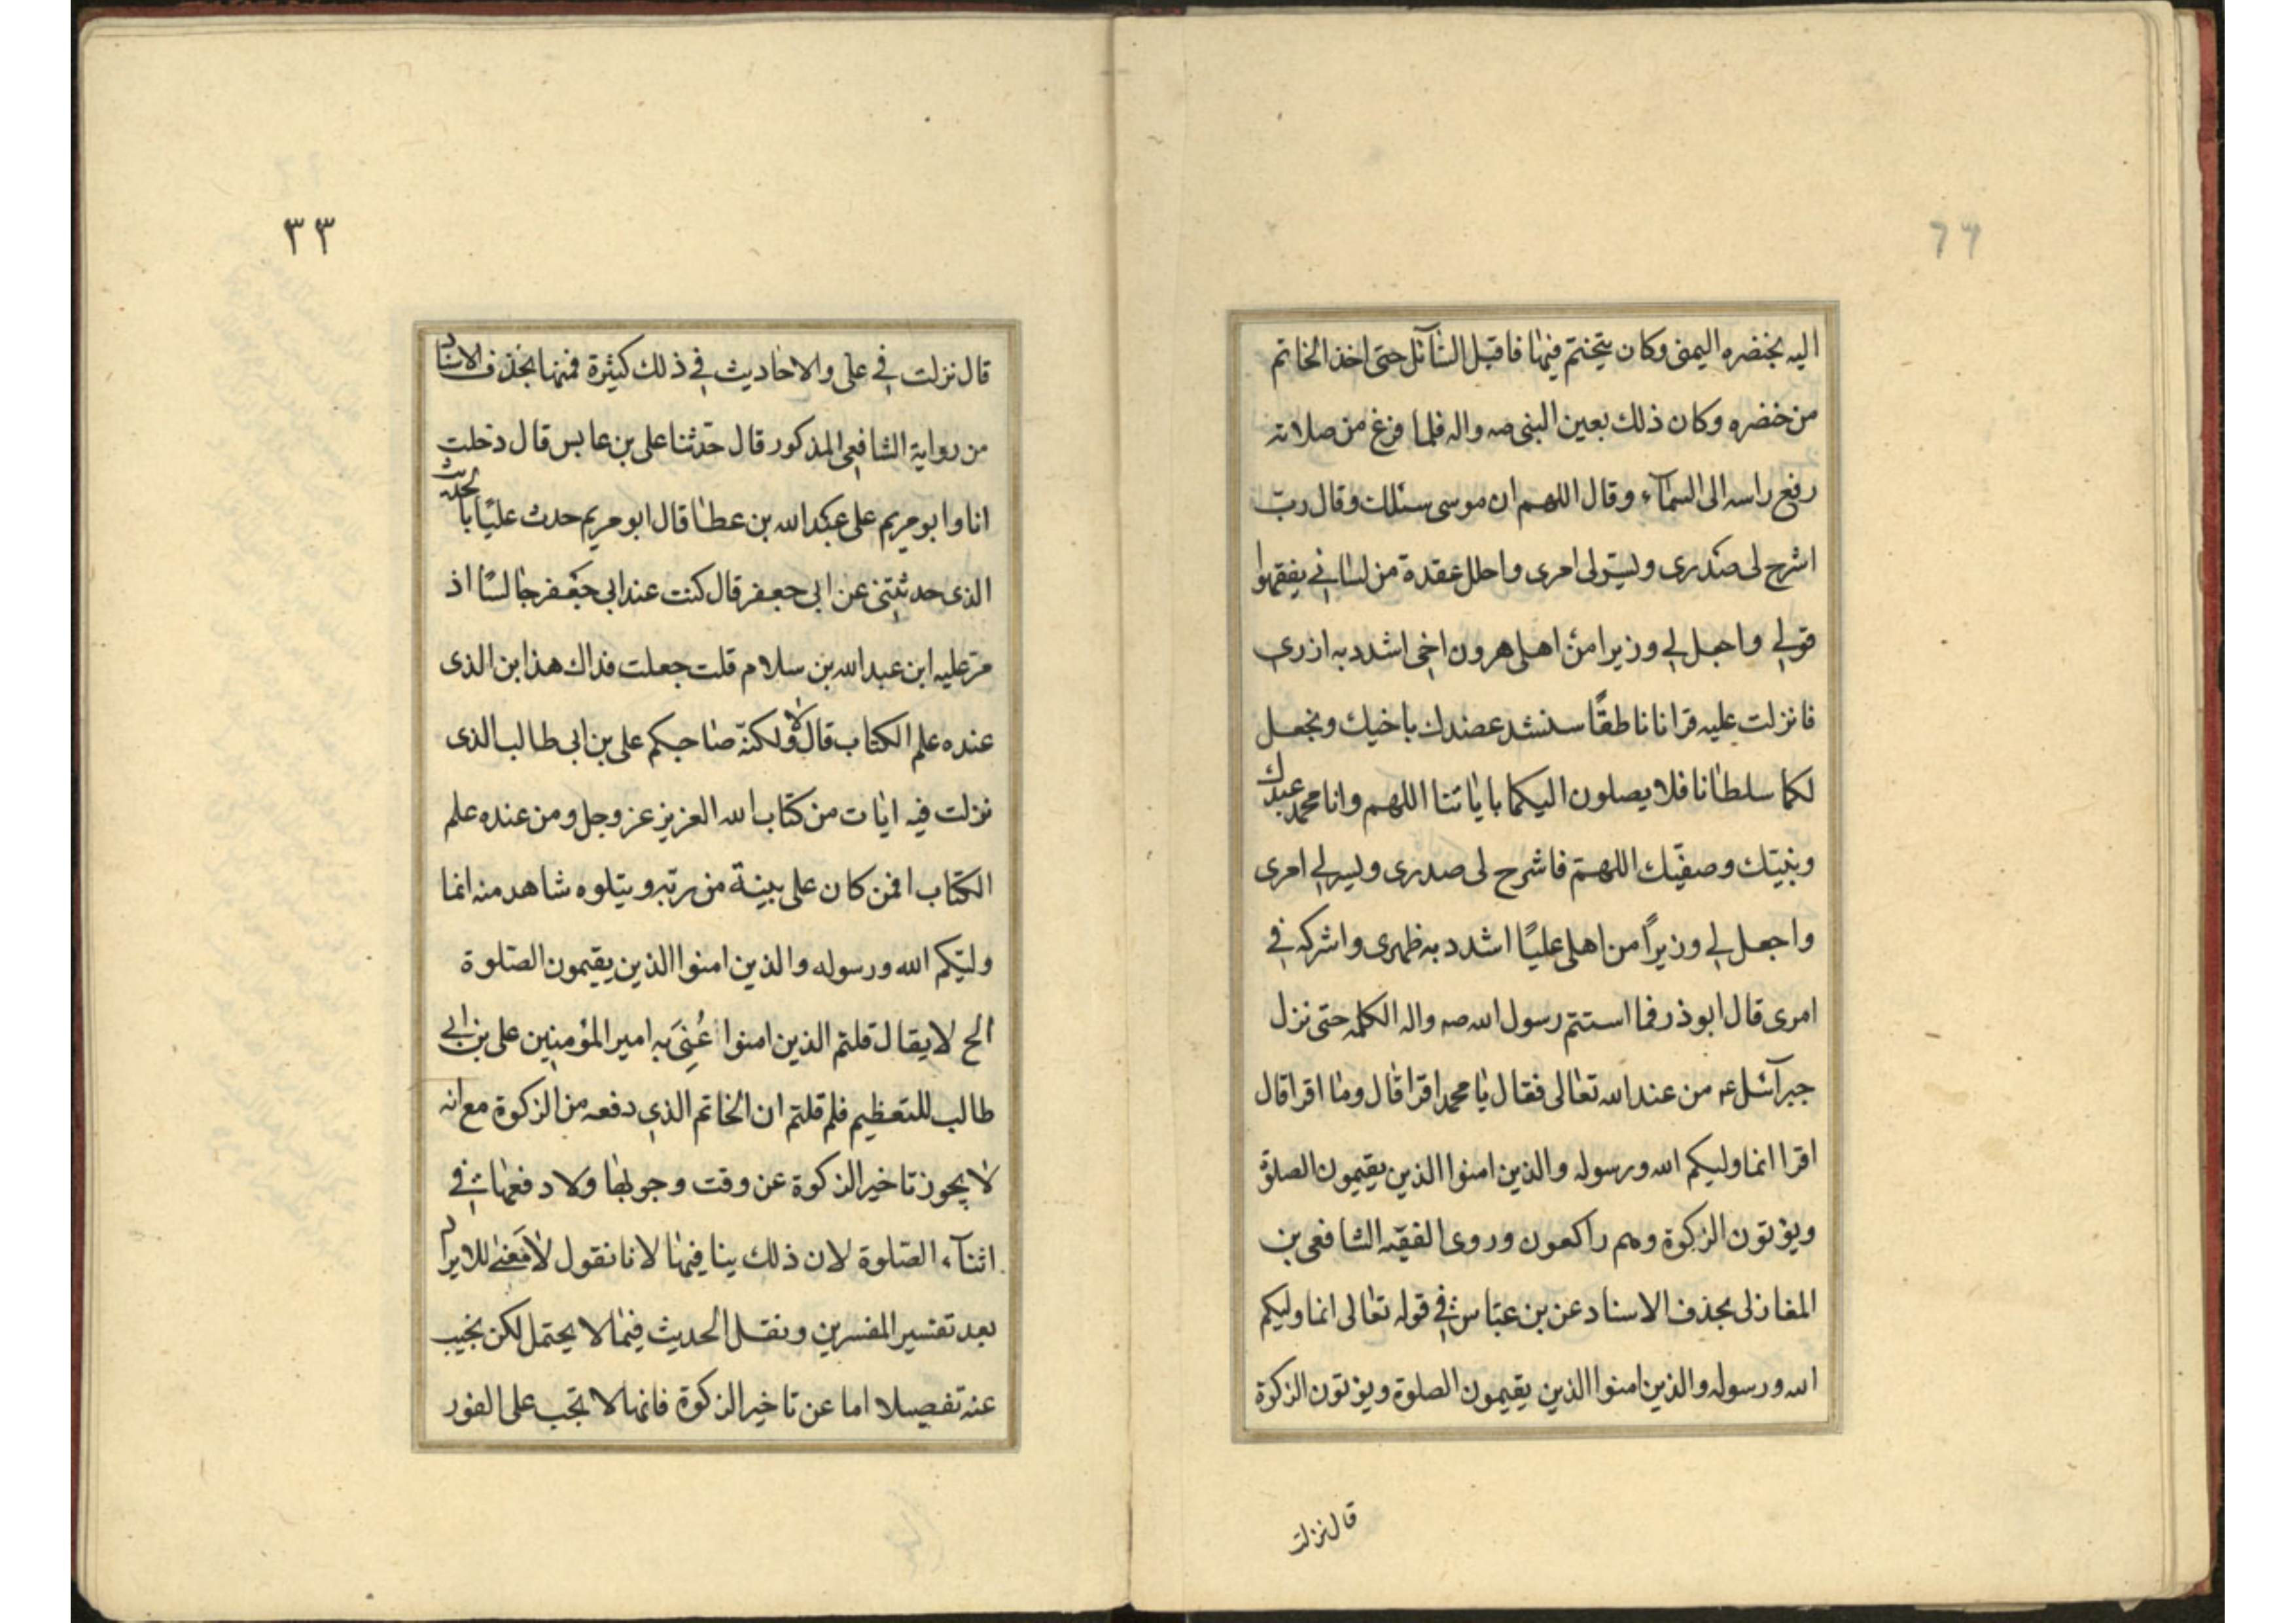 اليه بخنضره اليمنى وكان يتختم فيها فاقبل السٓائل حتى اخذ الخاتم
من خضره وكان ذلك بعين النبى صه واله فلما فرغ من صلاته
رفع راسه الى السمآء وقال اللهم ان موسى سئلك وقال ربّ
اشرح لى صَدرى ويسّر لى امرى واحلل عقدة من لسانى يفقهوا
قولى واجعل لى وزيرا من اهلى هرون اخى اشدد به ازرى
فانزلت عليه قرانا ناطقًا سنشد عضدك باخيك ونجعل
لكما سلطانا فلا يصلون اليكما باياتنا اللهم وانا محمد عبدك
ونبيّك وصفيّك اللهمّ فاشرح لى صدرى ويسر لى امرى
واجعل لى وزيراً من اهلى عليًا اشدد به ظهرى واشركه فى
امرى قال ابوذر فما استتم رسول الله صه واله الكلمه حتى نزل
جبرآئيل ع من عند الله تعالى فقال يا محمد اقرا قال وما اقرا قال
اقرا انما وليكم الله ورسوله والذين امنوا الذين يقيمون الصلوة
ويؤتون الزكوة وهم راكعون وروى الفقيه الشافعى بن
المغازلى بحذف الاسناد عن بن عبّاس رض فى قوله تعالى انما وليكم
الله ورسوله والذين امنوا الذين يقيمون الصلوة ويؤتون الزكوة
قال نزلت
٣٣
قال نزلت فى على والاحاديث فى ذلك كثيرة فمنها بحذف الاسناد
من رواية الشافعى المذكور قال حدّثنا على بن عابس قال دخلت
انا وابو مريم على عبد الله بن عطا قال ابو مريم حدث عليًا بالحديث
الذى حدثتنى عن ابى جعفر قال كنت عند ابى جعفر جالسًا اذ
مرّ عليه ابن عبد الله بن سلام قلت جعلت فداك هذا ابن الذى
عنده علم الكتاب قال لا ولكنّه صاحبكم على بن ابى طالب الذى
نزلت فيه ايات من كتاب الله العزيز عز وجل ومن عنده علم
الكتاب افمن كان على بينة من ربّه ويتلوه شاهد منه انما
وليّكم الله ورسوله والذين امنوا الذين يقيمون الصّلوة
الخ لا يقال قلتم الذين امنوا عُنِىَ به امير المؤمنين على بن ابى
طالب للتعظيم فلم قلتم ان الخاتم الذى دفعه من الزكوة مع انه
لا يجوز تاخير الزكوة عن وقت وجوبها ولا دفعها فى
اثنآء الصّلوة لان ذلك ينافيها لانا نقول لا مَعنى للايراد
بعد تفسير المفسرين ونقل الحديث فيما لا يحتمل لكن نجيب
عنه تفصيلا اما عن تاخير الزكوة فانها لا تجب على الفور